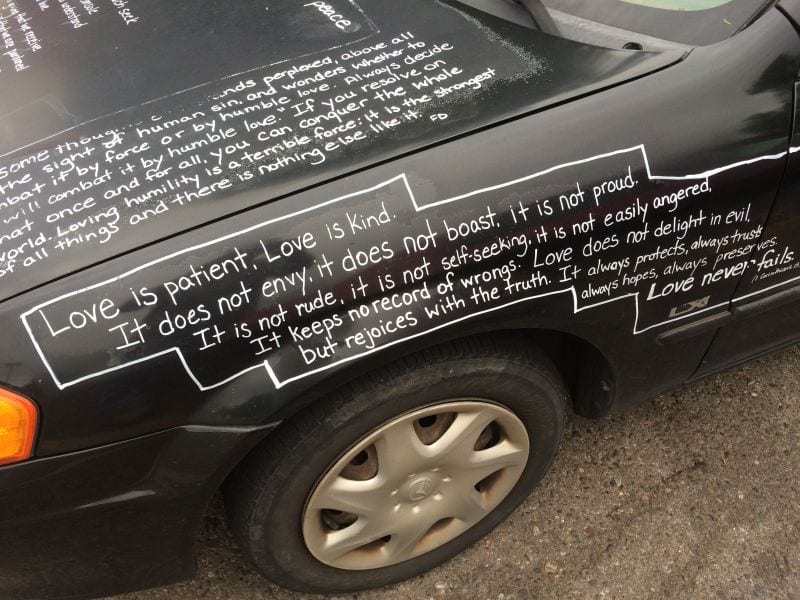 ch seek
understand
peace
some thoug nds perplexed, above all
the sight of human sin, and wonders whether to
mbat it by force or by humble love. Always decide
will combat it by humble love." If you resolve on
hat once and for all, you can conquer the whole
world. Loving humility is a terrible force: it is the strongest
of all things and there is nothing else like it. FD
Love is patient, Love is kind.
It does not envy, it does not boast, it is not proud.
It is not rude, it is not self-seeking, it is not easily angered,
It keeps no record of wrongs. Love does not delight in evil,
but rejoices with the truth. It always protects, always trusts
always hopes, always preserves.
Love never fails.
LX